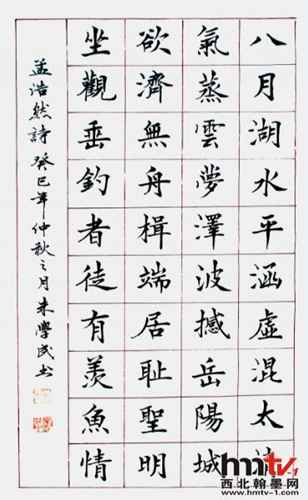 八月湖水平涵虛混太清
氣蒸雲夢澤波撼岳陽城
欲濟無舟楫端居耻聖明
坐觀垂釣者徒有羨魚情
孟浩然詩癸巳年仲秋之月朱學民书
hmtv
西北翰墨网
www.hmtv-1.com